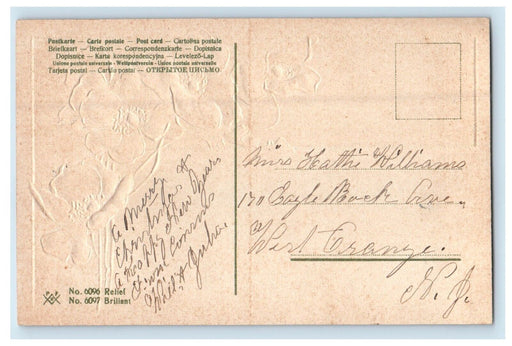 Postkarte — Carte postale — Post card — Cartolina postale
Briefkaart — Brefkort — Correspondenzkarte — Dopisnica
Dopisnice — Karta korespondencyjna — Levelező-Lap
Unione postale universale - Weltpostverein - Union postale universelle
Tarjeta postal — Cartão postal — ОТКРЫТОЕ ПИСЬМО
A Merry
Christmas &
a Happy New Year
from Cousins
Phil & Julia
Miss Hattie Williams
170 Eagle Rock Ave.
West Orange.
N. J.
No. 6096 Relief
No. 6097 Brillant